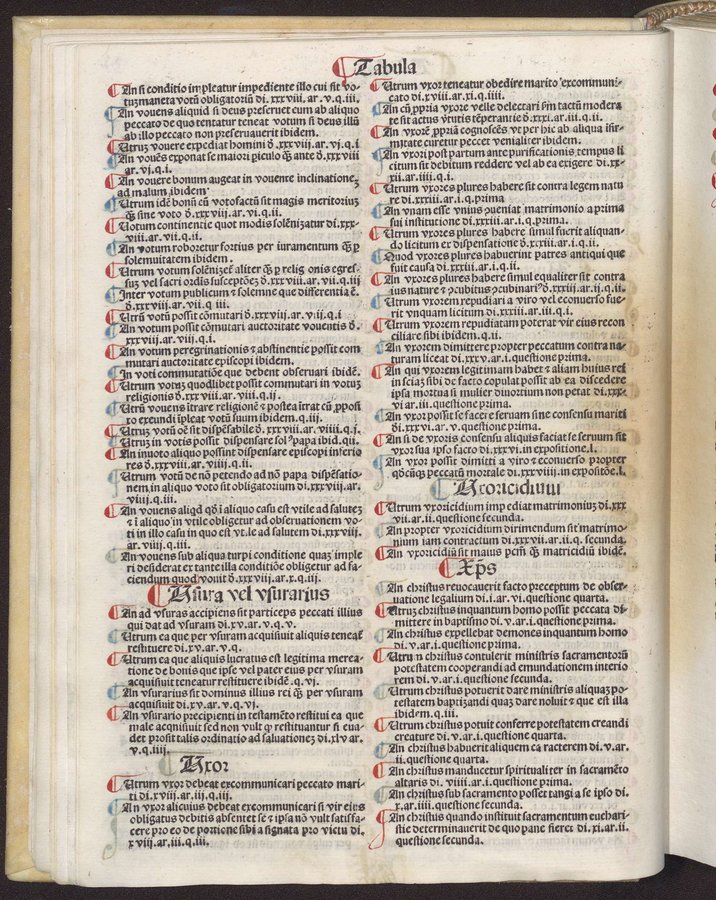 Tabula
An si conditio impleatur impediente illo cui sit vo-
tuȝ maneata votū obligatoriū di. xxxviii. ar. v. q. iii.
An vouens aliquid si deus preseruet eum ab aliquo
peccato de quo tentatur teneat votum si deus illū
ab illo peccato non preseruauerit ibidem.
Utruȝ vouere expediat homini d̄. xxxviij. ar. vj. q. i
An vouēs exponat se maiori piculo q̄ȝ ante d̄. xxxviij
ar. vj. q. i.
An vouere bonum augeat in vouente inclinationeȝ
ad malum ibidem
Utrum idē bonū cū voto factū sit magis meritoriuȝ
q̄ȝ sine voto d̄. xxxviij. ar. vi. q. ii.
Uotum continentie quot modis solēnizatur di. xxx-
viii. ar. vii. q. ii.
An votum roboretur fortius per iuramentum q̄ȝ ꝑ
solemnitatem ibidem.
Utrum votum solēnizet̄ aliter q̄ȝ ꝑ religionis egres-
suȝ vel sacri ordīs susceptōeȝ d̄. xxxviii. ar. vii. q. iij
Inter votum publicum ⁊ solemne que differentia ē.
d̄. xxxviij. ar. vii. q. iii.
Utrū votū possit cōmutari d̄. xxxviij. ar. viij. q. i
An votum possit cōmutari auctoritate vouentis d̄.
xxxviij. ar. viij. q. i.
An votum peregrinationis ⁊ abstinentie possit com
mutari auctoritate episcopi ibidem.
In voti commutatiōe que debent obseruari ibidē.
Utrum votuȝ quodlibet possit commutari in votuȝ
religionis d̄. xxxviij. ar. viij. q. ij.
Utrū vouens ītrare religionē ⁊ postea ītrat cū ꝓposi
to exeundi īpleat votū suum ibidem. q. iij.
Utruȝ votū oē sit dispēsabile d̄. xxxviii. ar. viiij. q. j.
Utruȝ in votis possit dispensare solꝰ papa ibid. q. ii.
An in uoto aliquo possint dispensare episcopi inferio
res d̄. xxxviii. ar. viiij. q. ii.
Utrum votū de nō petendo ad nō papa dispēsatio-
nem, in aliquo voto sit obligatorium di. xxxviij. ar.
viiij. q. iii.
An vouens aliqd qd̄ i aliquo casu est vtile ad saluteȝ
⁊ i aliquo in vtile obligetur ad obseruationem vo-
ti in illo casu in quo est vtile ad salutem di. xxxviij.
ar. viiij. q. iii.
An vouens sub aliqua turpi conditione quaȝ imple
ri desiderat ex tante illa conditiōe obligetur ad fa-
ciendum quod vouit d̄. xxxviij. ar. x. q. iij.
Usura vel vsurarius
An ad vsuras accipiens sit particeps peccati illius
qui dat ad vsuram di. xv. ar. v. q. v.
Utrum ea que per vsuram acquisiuit aliquis teneat̄
restituere di. xv. ar. v. q.
Utrum ea que aliquis lucratus est legitima merca-
tione de bonis que ipse vel pater eius per vsuram
acquisiuit teneatur restituere ibidē. q. vj.
An vsurarius sit dominus illius rei q̄ȝ per vsuram
acquisiuit di. xv. ar. v. q. vj.
An vsurario precipienti in testamēto restitui ea que
male acquisiuit sed non vult q̄ restituantur si eua-
det prosit talis ordinatio ad saluationeȝ di. xlv ar.
v. q. iiij.
Uxor
Utrum vxor debeat excommunicari peccato mari-
ti di. xviij. ar. ij. q. iij.
An vxor alicuius debeat excommunicari si vir eius
obligatus debitis absentet se ⁊ ipsa nō vult satisfa-
cere pro eo de portione sibi a signata pro victu di.
xviij. ar. iii. q. iii.
Utrum vxor teneatur obedire marito excommuni-
cato di. xviii. ar. xi. q. iiii.
An cū ꝓpria vxore velle delectari sm̄ tactū modera
te sit actus v̄tutis tēperantie d̄. xxxi. ar. iii. q. ii.
An vxorē ꝓpriā cognoscēs vt per hic ab aliqua ifir-
mitate curetur peccet venialiter ibidem.
An vxori post partum ante purificationis tempus li
citum sit debitum reddere vel ab ea exigere di. xx-
xii. ar. iiij. q. i.
Utrum vxores plures habere sit contra legem natu
re di. xxxiii. ar. i. q. prima
An vnam esse vnius ꝯueniat matrimonio a prima
sui institutione di. xxxiii. ar. i. q. prima.
Utrum vxores plures habere simul fuerit aliquan-
do licitum ex dispensatione d̄. xxxiii. ar. i. q. ii.
Quod vxores plures habuerint patres antiqui que
fuit causa di. xxxiii. ar. i. q. ii.
An vxores plures habere simul equaliter sit contra
ius nature ⁊ ꝯcubitus ꝯcubinariꝰ d̄. xxxiij. ar. ij. q. ii.
Utrum vxorem repudiari a viro vel econuerso fue-
rit vnquam licitum di. xxxiii. ar. iii. q. i.
Utrum vxorem repudiatam poterat vir eius recon
ciliare sibi ibidem. q. ii.
An vxorem dimittere propter peccatum contra na-
turam liceat di. xxxv. ar. i. questione prima.
An qui vxorem legitimam habet ⁊ aliam huius rei
insciaȝ sibi de facto copulat possit ab ea discedere
ipsa mortua si mulier diuortium non petat di. xxx-
vi ar. iii. questione prima.
An vxor possit se facere seruam sine consensu mariti
d̄. xxxvi. ar. v. questione prima.
An si de vxoris consensu aliquis faciat se seruum sit
vxor sua ipso facto di. xxxvi. in expositione. l.
An vxor possit dimitti a viro ⁊ econuerso propter
qd̄cūqȝ peccatū mortale di. xxxviiij. in expositōe. l.
Uxoricidium
Utrum vxoricidium impediat matrimoniuȝ di. xxx
vii. ar. ii. questione secunda.
An propter vxoricidium dirimendum sit matrimo-
nium iam contractum di. xxxvii. ar. ii. q. secunda.
An vxoricidiū sit maius pctm̄ q̄ȝ matricidiū ibidē.
Xp̄s
An christus reuocauerit facto preceptum de obser-
uatione legalium di. i. ar. vi. questione quarta.
Utruȝ christus inquantum homo possit peccata di-
mittere in baptismo di. v. ar. i. questione prima.
An christus expellebat demones inquantum homo
di. v. ar. i. questione prima.
Utrum christus contulerit ministris sacramentorū
potestatem cooperandi ad emundationem interio
rem di. v. ar. i. questione secunda.
Utrum christus potuerit dare ministris aliquaȝ po-
testatem baptizandi quaȝ dare noluit ⁊ que est illa
ibidem. q. iii.
Utrum christus potuit conferre potestatem creandi
creature di. v. ar. i. questione quarta.
An christus habuerit aliquem caracterem di. v. ar.
ii. questione quarta.
An christus manducetur spiritualiter in sacramēto
altaris di. viiii. ar. i. questione prima.
An christus sub sacramento posset tangi a se ipso di.
x. ar. iiii. questione secunda.
An christus quando instituit sacramentum euchari-
stie determinauerit de quo pane fieret di. xi. ar. ii.
questione secunda.